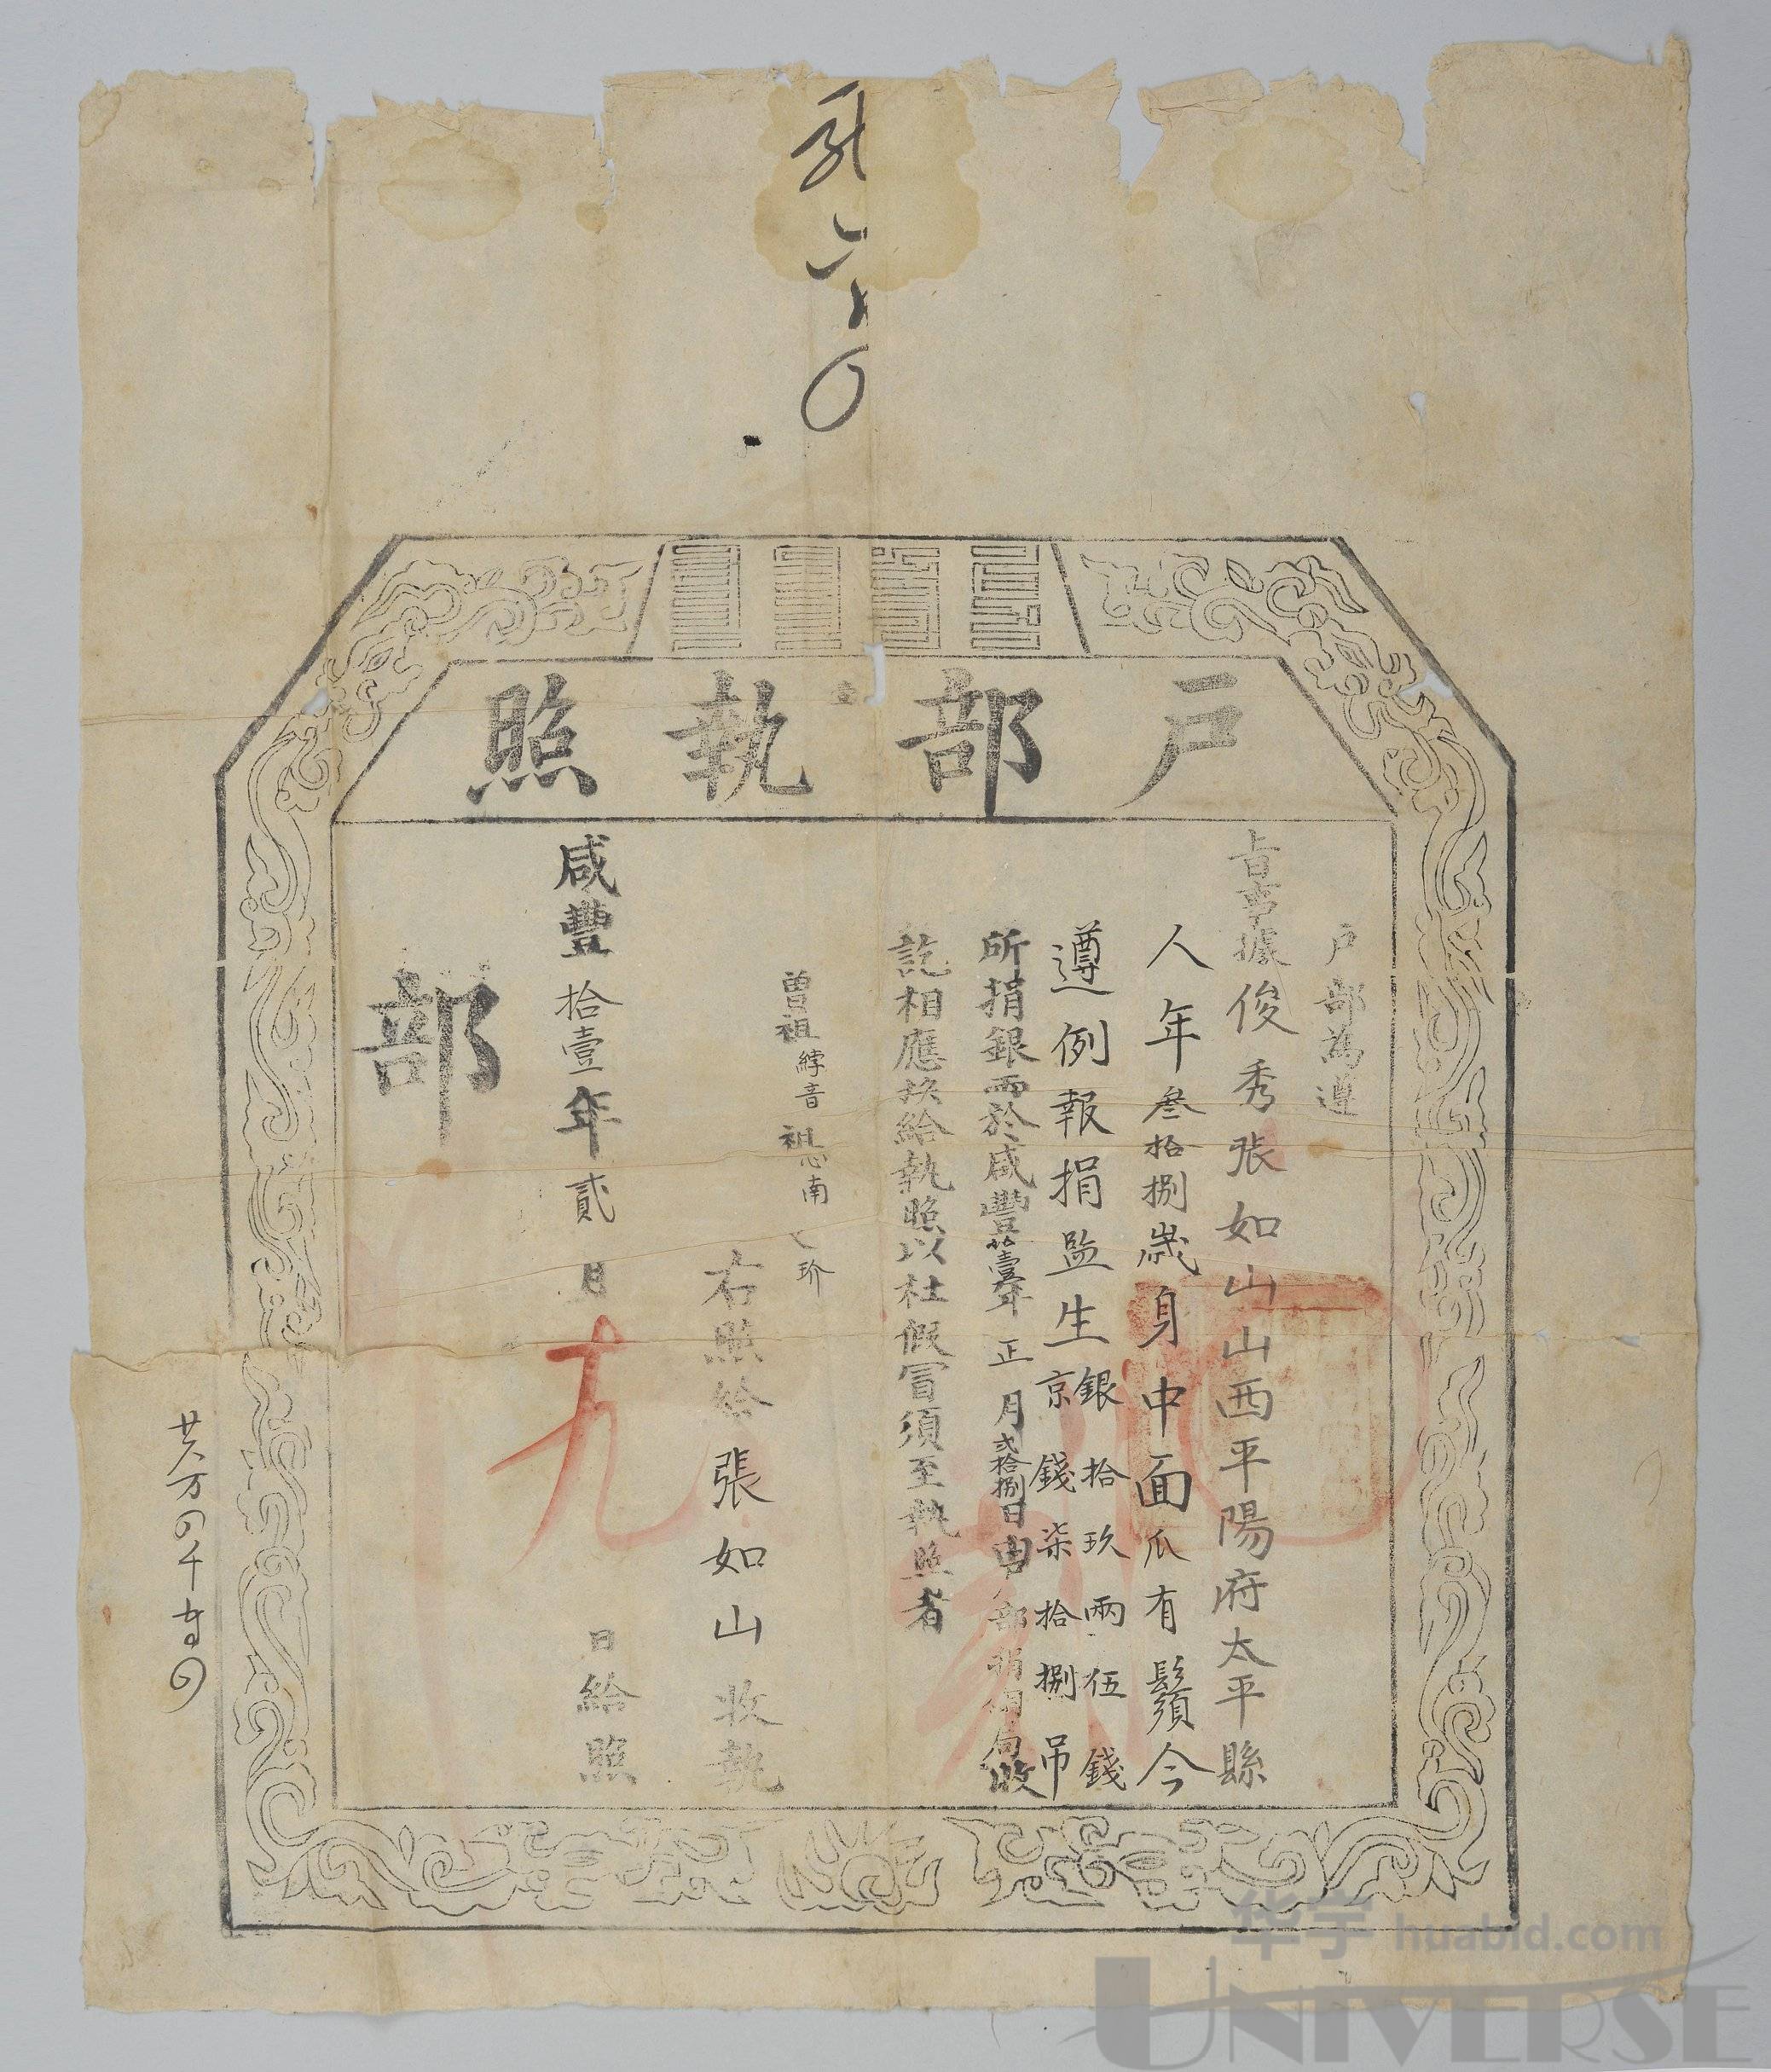 戶部執照
戶部為遵
旨事據俊秀張如山山西平陽府太平縣
人年叁拾捌歲身中面爪有鬚今
遵例報捐監生
銀拾玖兩伍錢
京錢柒拾捌吊
所捐銀兩於咸豐拾壹年正月貳拾捌日由部捐銅局收
訖相應換給執照以杜假冒須至執照者
曾祖 音 祖 南 玠
右照給張如山收執
咸豐拾壹年貳月 日給照
部
华宇 huabid.com
UNIVERSE